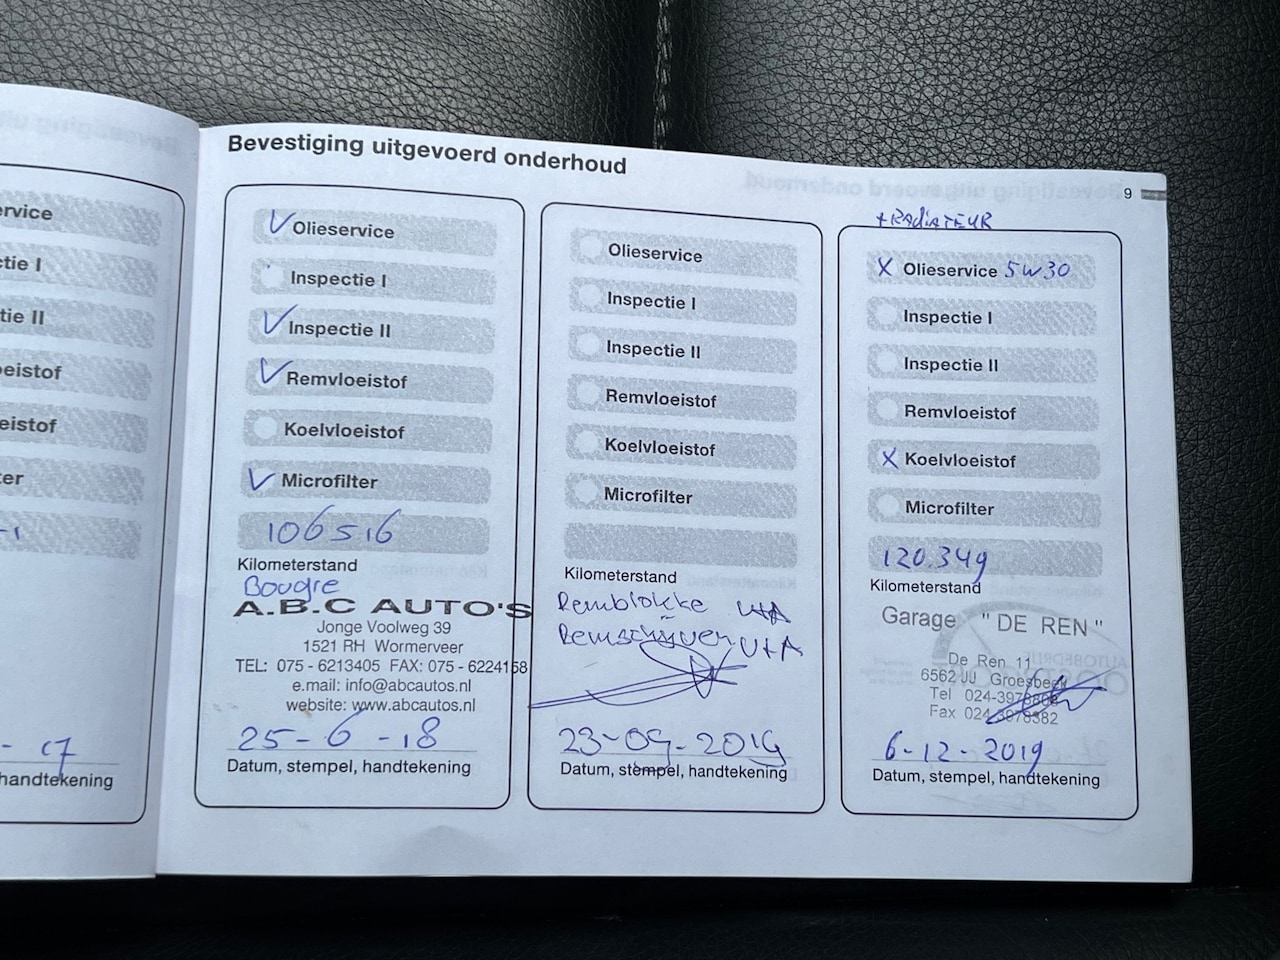 Bevestiging uitgevoerd onderhoud
9
ervice
ctie I
tie II
eistof
eistof
er
-1
- 17
handtekening
Olieservice
Inspectie I
Inspectie II
Remvloeistof
Koelvloeistof
Microfilter
106516
Kilometerstand
Bougie
A.B.C AUTO'S
Jonge Voolweg 39
1521 RH Wormerveer
TEL: 075 - 6213405 FAX: 075 - 6224158
e.mail: info@abcautos.nl
website: www.abcautos.nl
25-6-18
Datum, stempel, handtekening
Olieservice
Inspectie I
Inspectie II
Remvloeistof
Koelvloeistof
Microfilter
Kilometerstand
Remblokke V+A
Remschijven V+A
23-09-2019
Datum, stempel, handtekening
+ RADiATEUR
X Olieservice 5W30
Inspectie I
Inspectie II
Remvloeistof
X Koelvloeistof
Microfilter
120.349
Kilometerstand
Garage "DE REN"
De Ren 11
6562 JJ Groesbeek
Tel 024-3978808
Fax 024-3978382
6-12-2019
Datum, stempel, handtekening